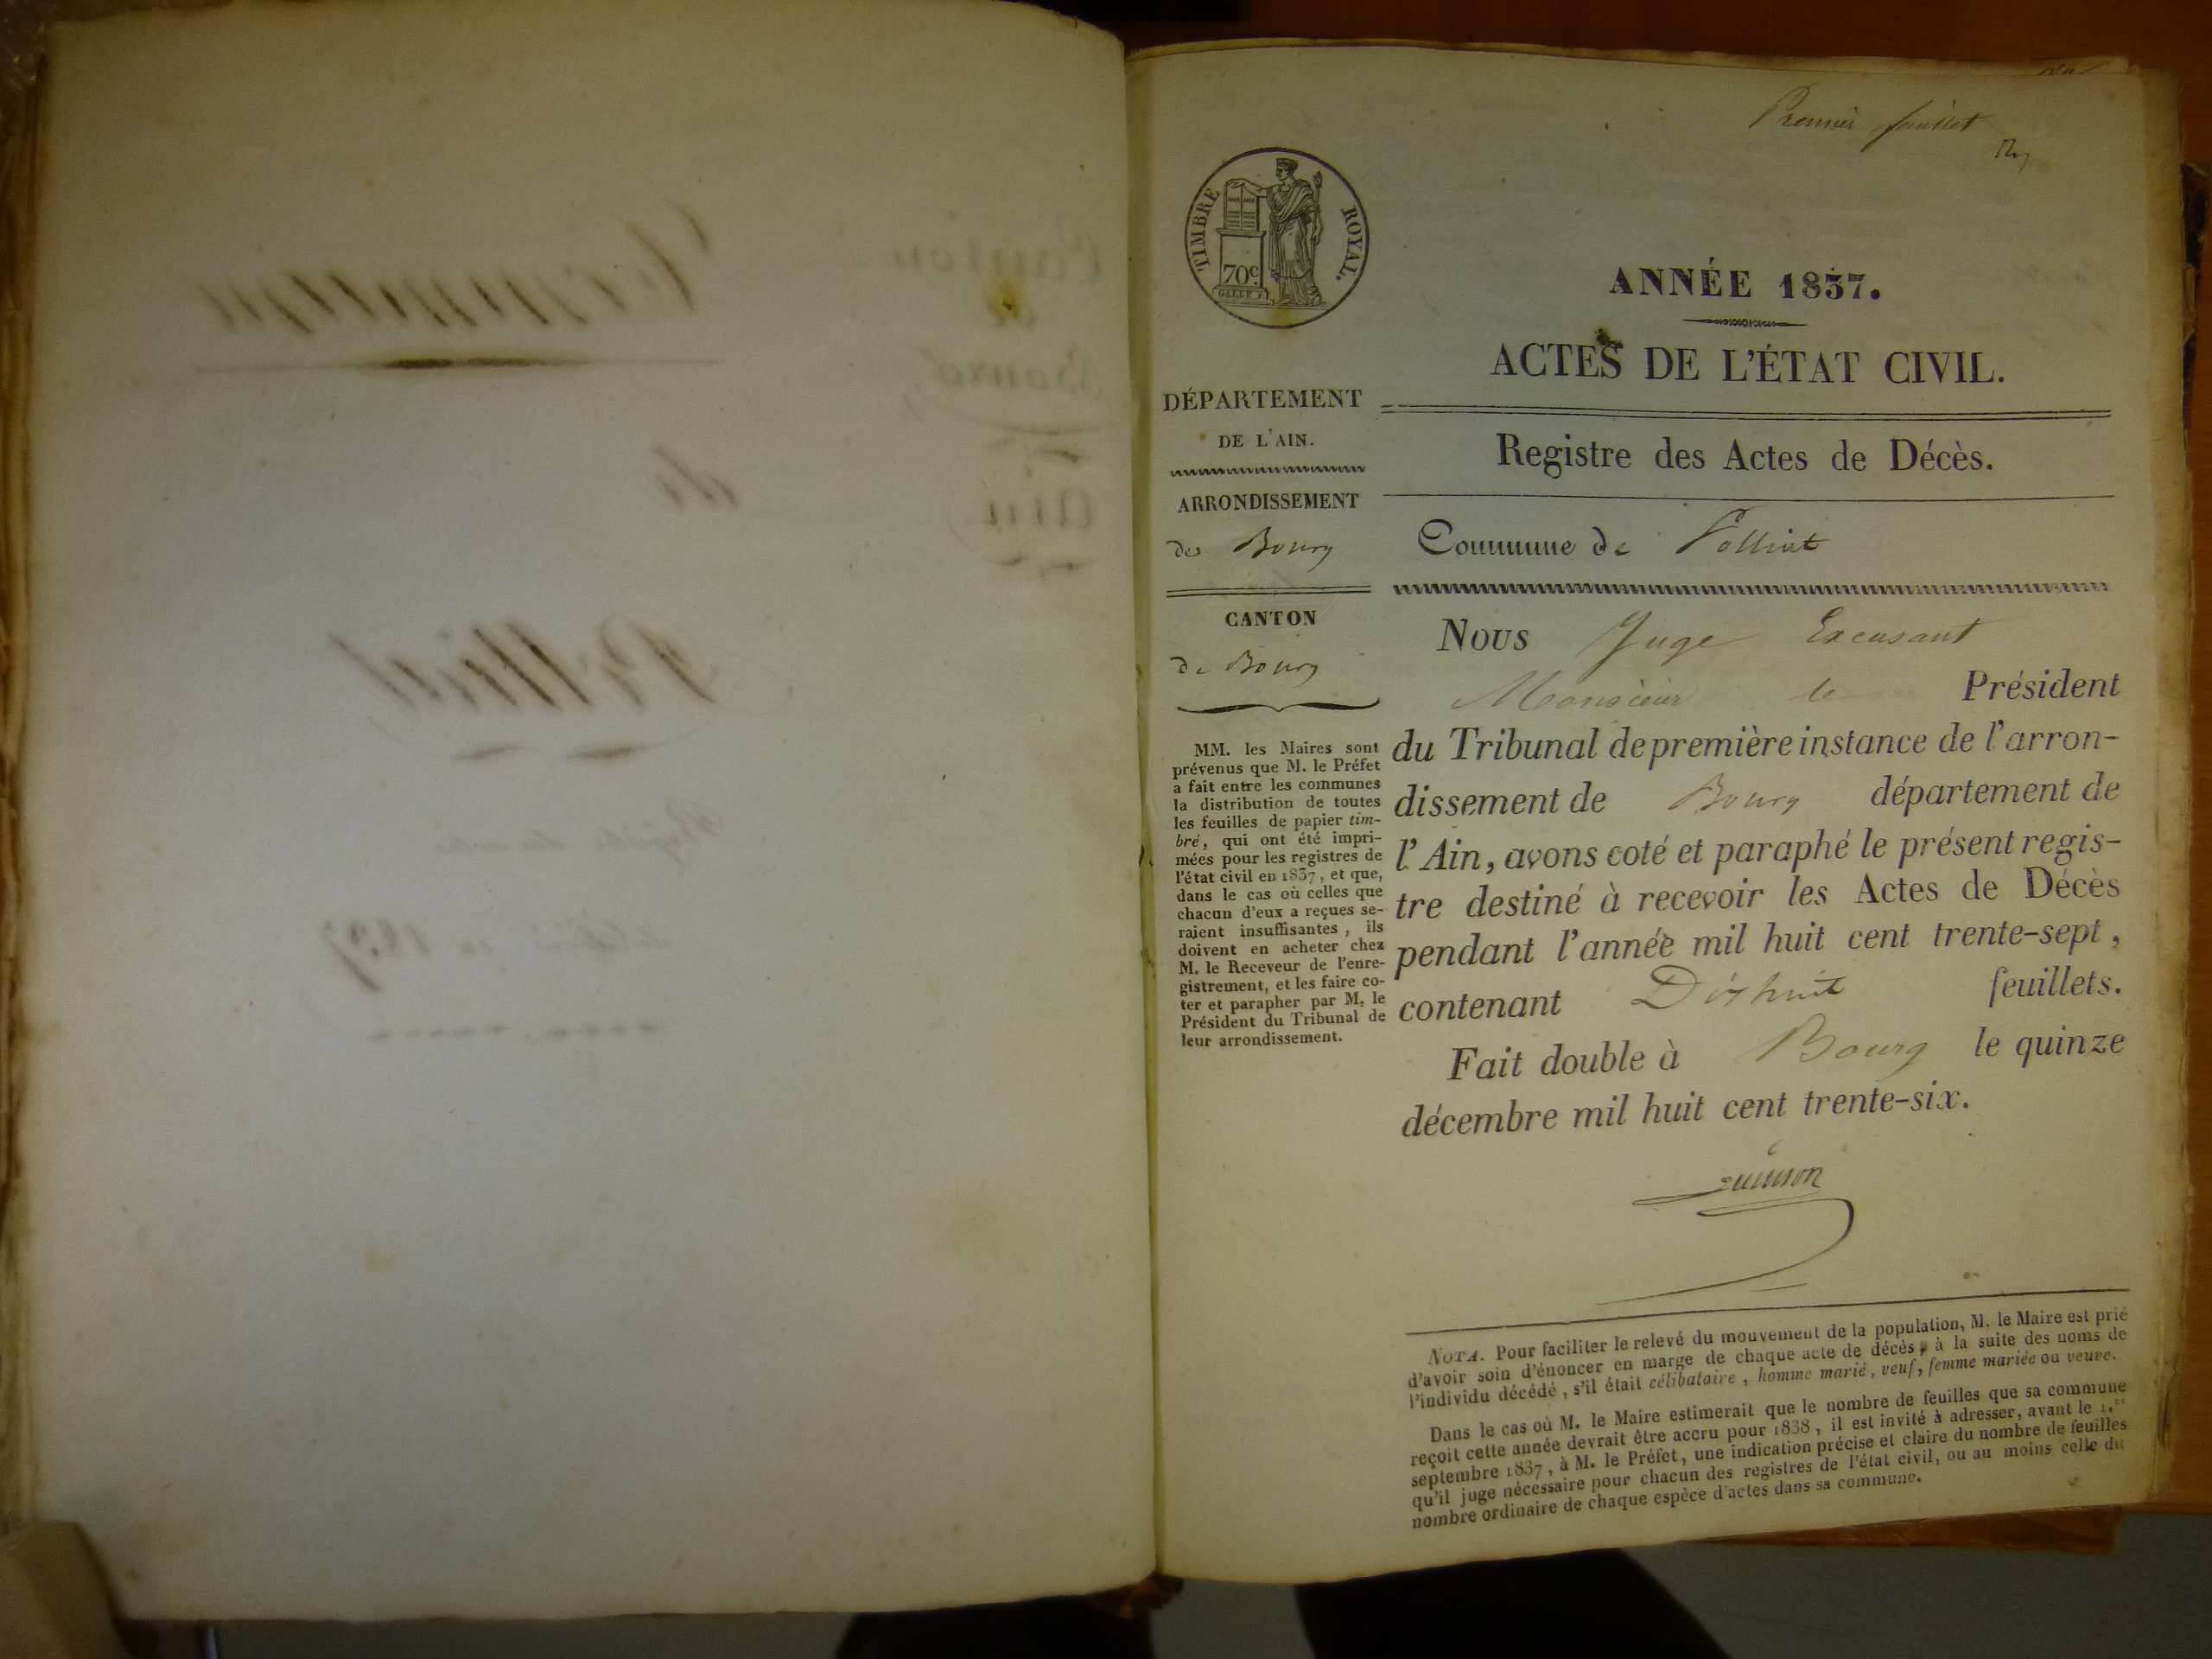 Premier feuillet
TIMBRE ROYAL.
70c
GALLE F.
ANNÉE 1837.
ACTES DE L'ÉTAT CIVIL.
Registre des Actes de Décès.
Commune de Polliat
DÉPARTEMENT
DE L'AIN.
ARRONDISSEMENT
de Bourg
CANTON
de Bourg
MM. les Maires sont
prévenus que M. le Préfet
a fait entre les communes
la distribution de toutes
les feuilles de papier tim-
bré, qui ont été impri-
mées pour les registres de
l'état civil en 1837, et que,
dans le cas où celles que
chacun d'eux a reçues se-
raient insuffisantes, ils
doivent en acheter chez
M. le Receveur de l'enre-
gistrement, et les faire co-
ter et parapher par M. le
Président du Tribunal de
leur arrondissement.
Nous Juge Excusant
Monsieur le Président
du Tribunal de première instance de l'arron-
dissement de Bourg département de
l'Ain, avons coté et paraphé le présent regis-
tre destiné à recevoir les Actes de Décès
pendant l'année mil huit cent trente-sept,
contenant Dixhuit feuillets.
Fait double à Bourg le quinze
décembre mil huit cent trente-six.
NOTA. Pour faciliter le relevé du mouvement de la population, M. le Maire est prié
d'avoir soin d'énoncer en marge de chaque acte de décès, à la suite des noms de
l'individu décédé, s'il était célibataire, homme marié, veuf, femme mariée ou veuve.
Dans le cas où M. le Maire estimerait que le nombre de feuilles que sa commune
reçoit cette année devrait être accru pour 1838, il est invité à adresser, avant le 1.er
septembre 1837, à M. le Préfet, une indication précise et claire du nombre de feuilles
qu'il juge nécessaire pour chacun des registres de l'état civil, ou au moins celle du
nombre ordinaire de chaque espèce d'actes dans sa commune.